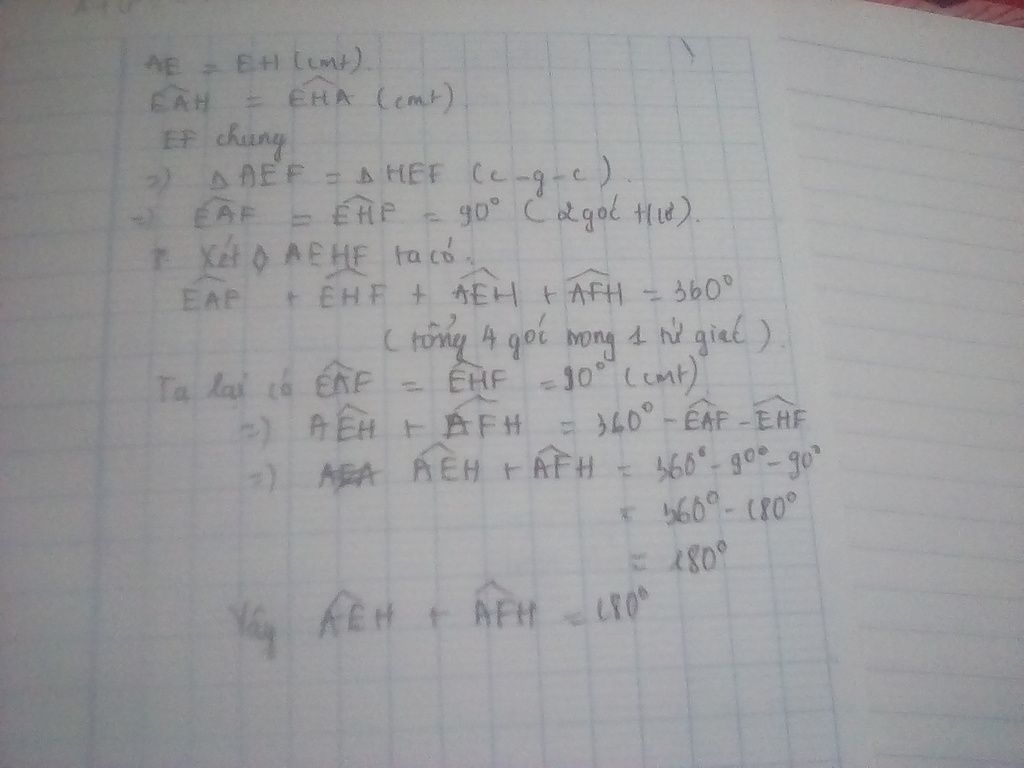 AE = EH (cmt).
EÂH = EĤA (cmt)
EF chung
=> △AEF = △HEF (c-g-c).
=> EÂF = EĤF = 90° (2 góc t/ư).
Xét ◊ AEHF ta có:
EÂF + EĤF + AÊH + AF̂H = 360°
(tổng 4 góc trong 1 tứ giác).
Ta lại có EÂF = EĤF = 90° (cmt)
=> AÊH + AF̂H = 360° - EÂF - EĤF
=> AÊH + AF̂H = 360° - 90° - 90°
= 360° - 180°
= 180°
Vậy AÊH + AF̂H = 180°